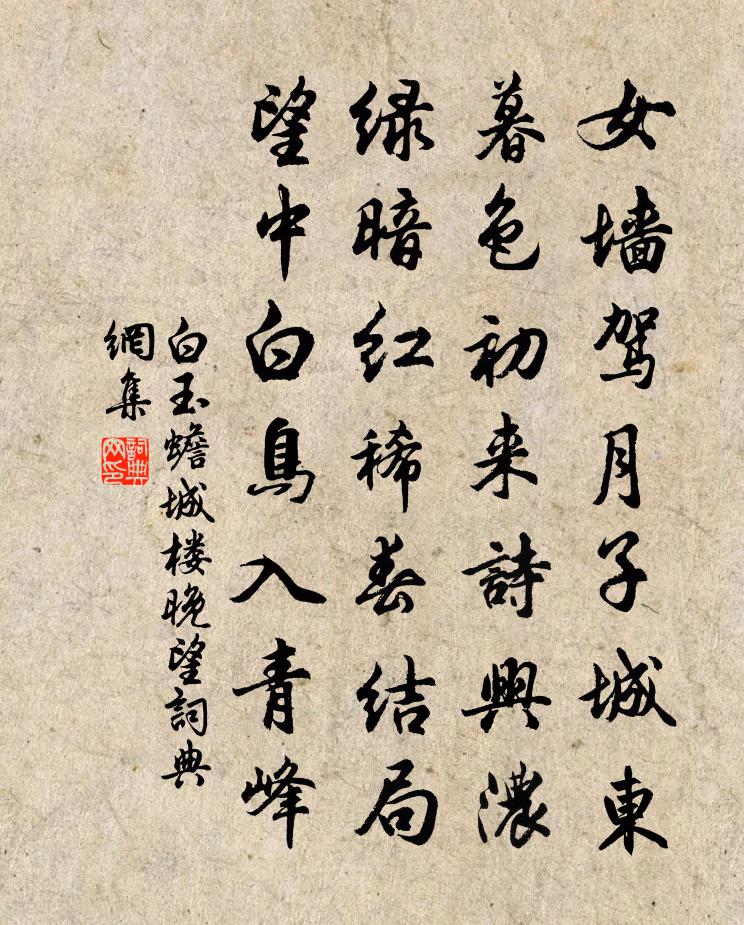 女墙驾月子城東
暮色初来詩興濃
绿暗红稀春结局
望中白鳥入青峰
白玉蟾城楼晚望詞典
網集
詞典
网印